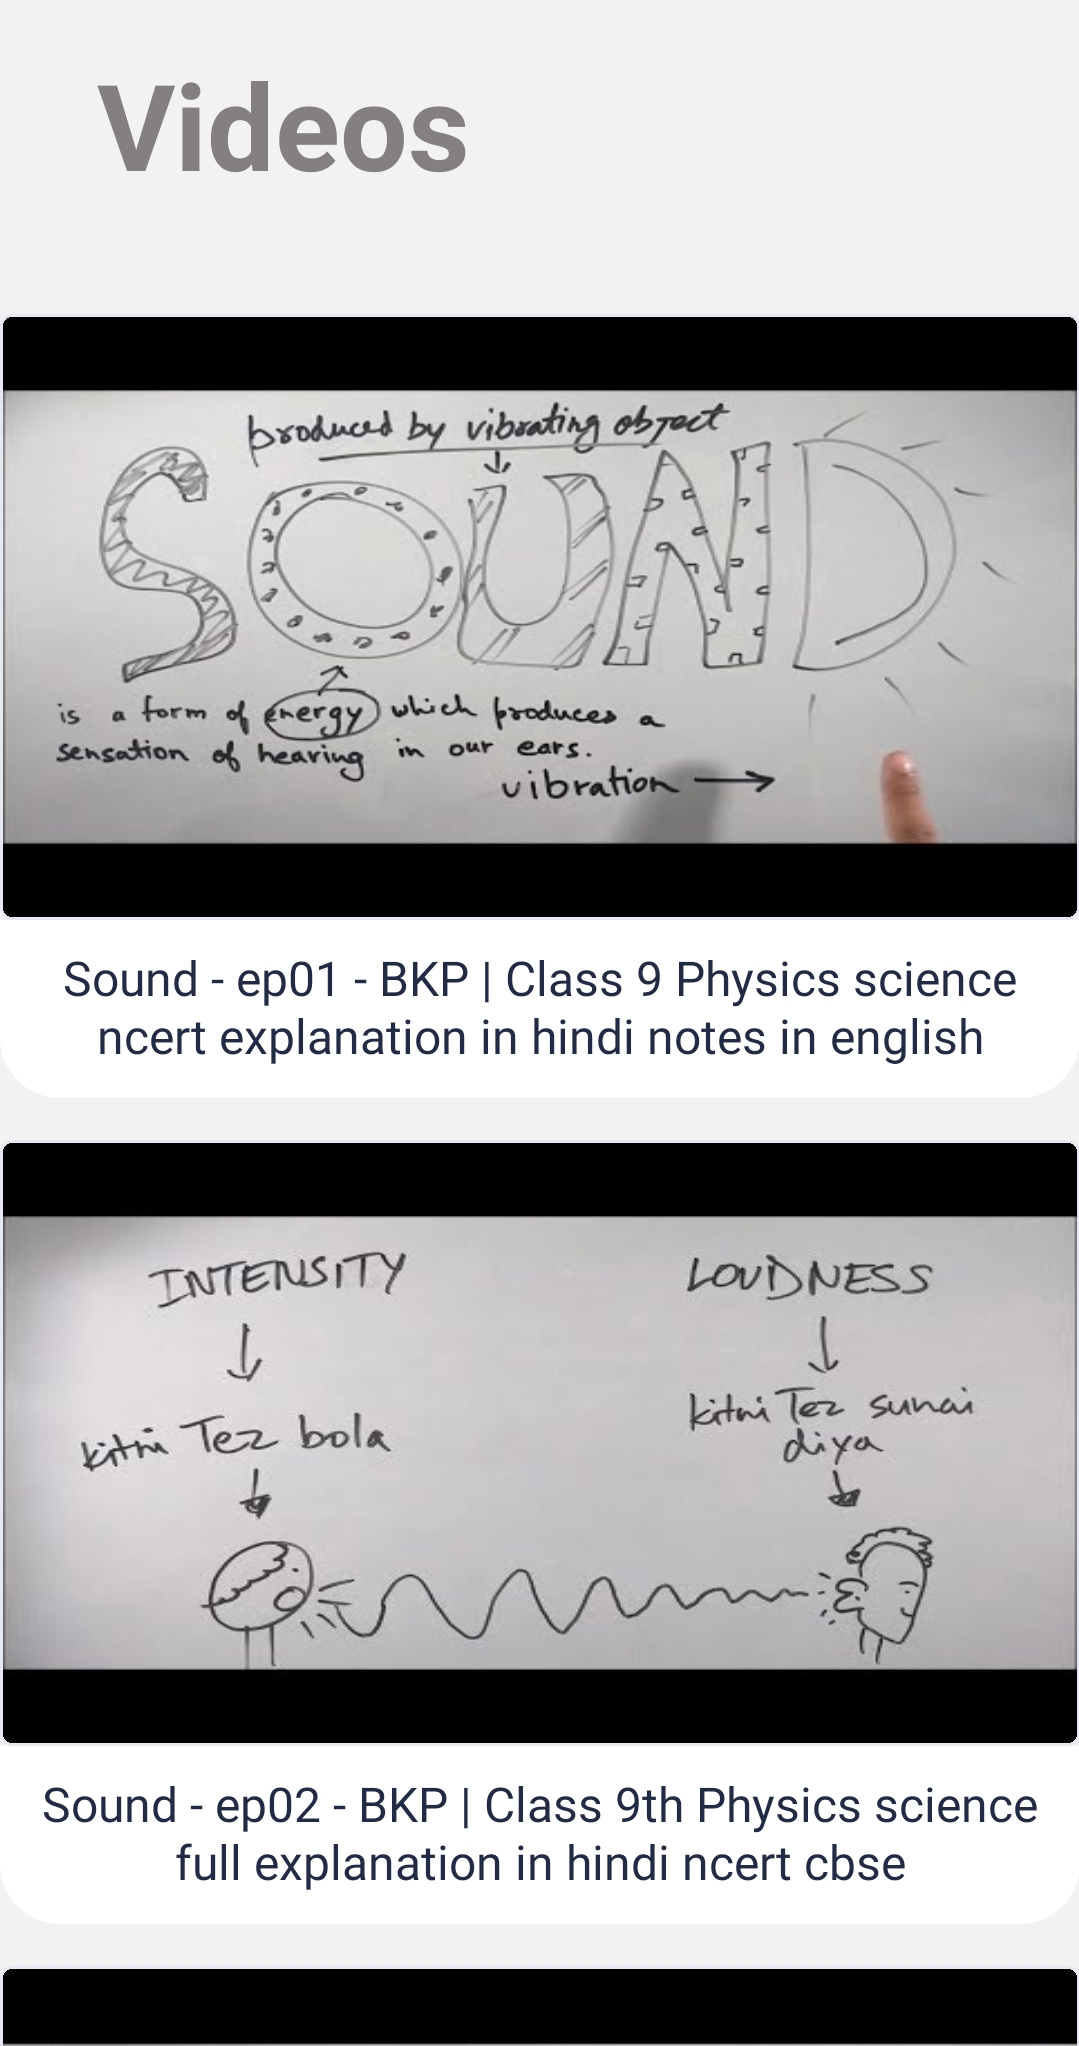 Videos
produced by vibrating object
SOUND
is a form of energy which produces a
sensation of hearing in our ears.
vibration
Sound - ep01 - BKP | Class 9 Physics science
ncert explanation in hindi notes in english
INTENSITY
LOUDNESS
kitni Tez bola
kitni Tez sunai
diya
Sound - ep02 - BKP | Class 9th Physics science
full explanation in hindi ncert cbse